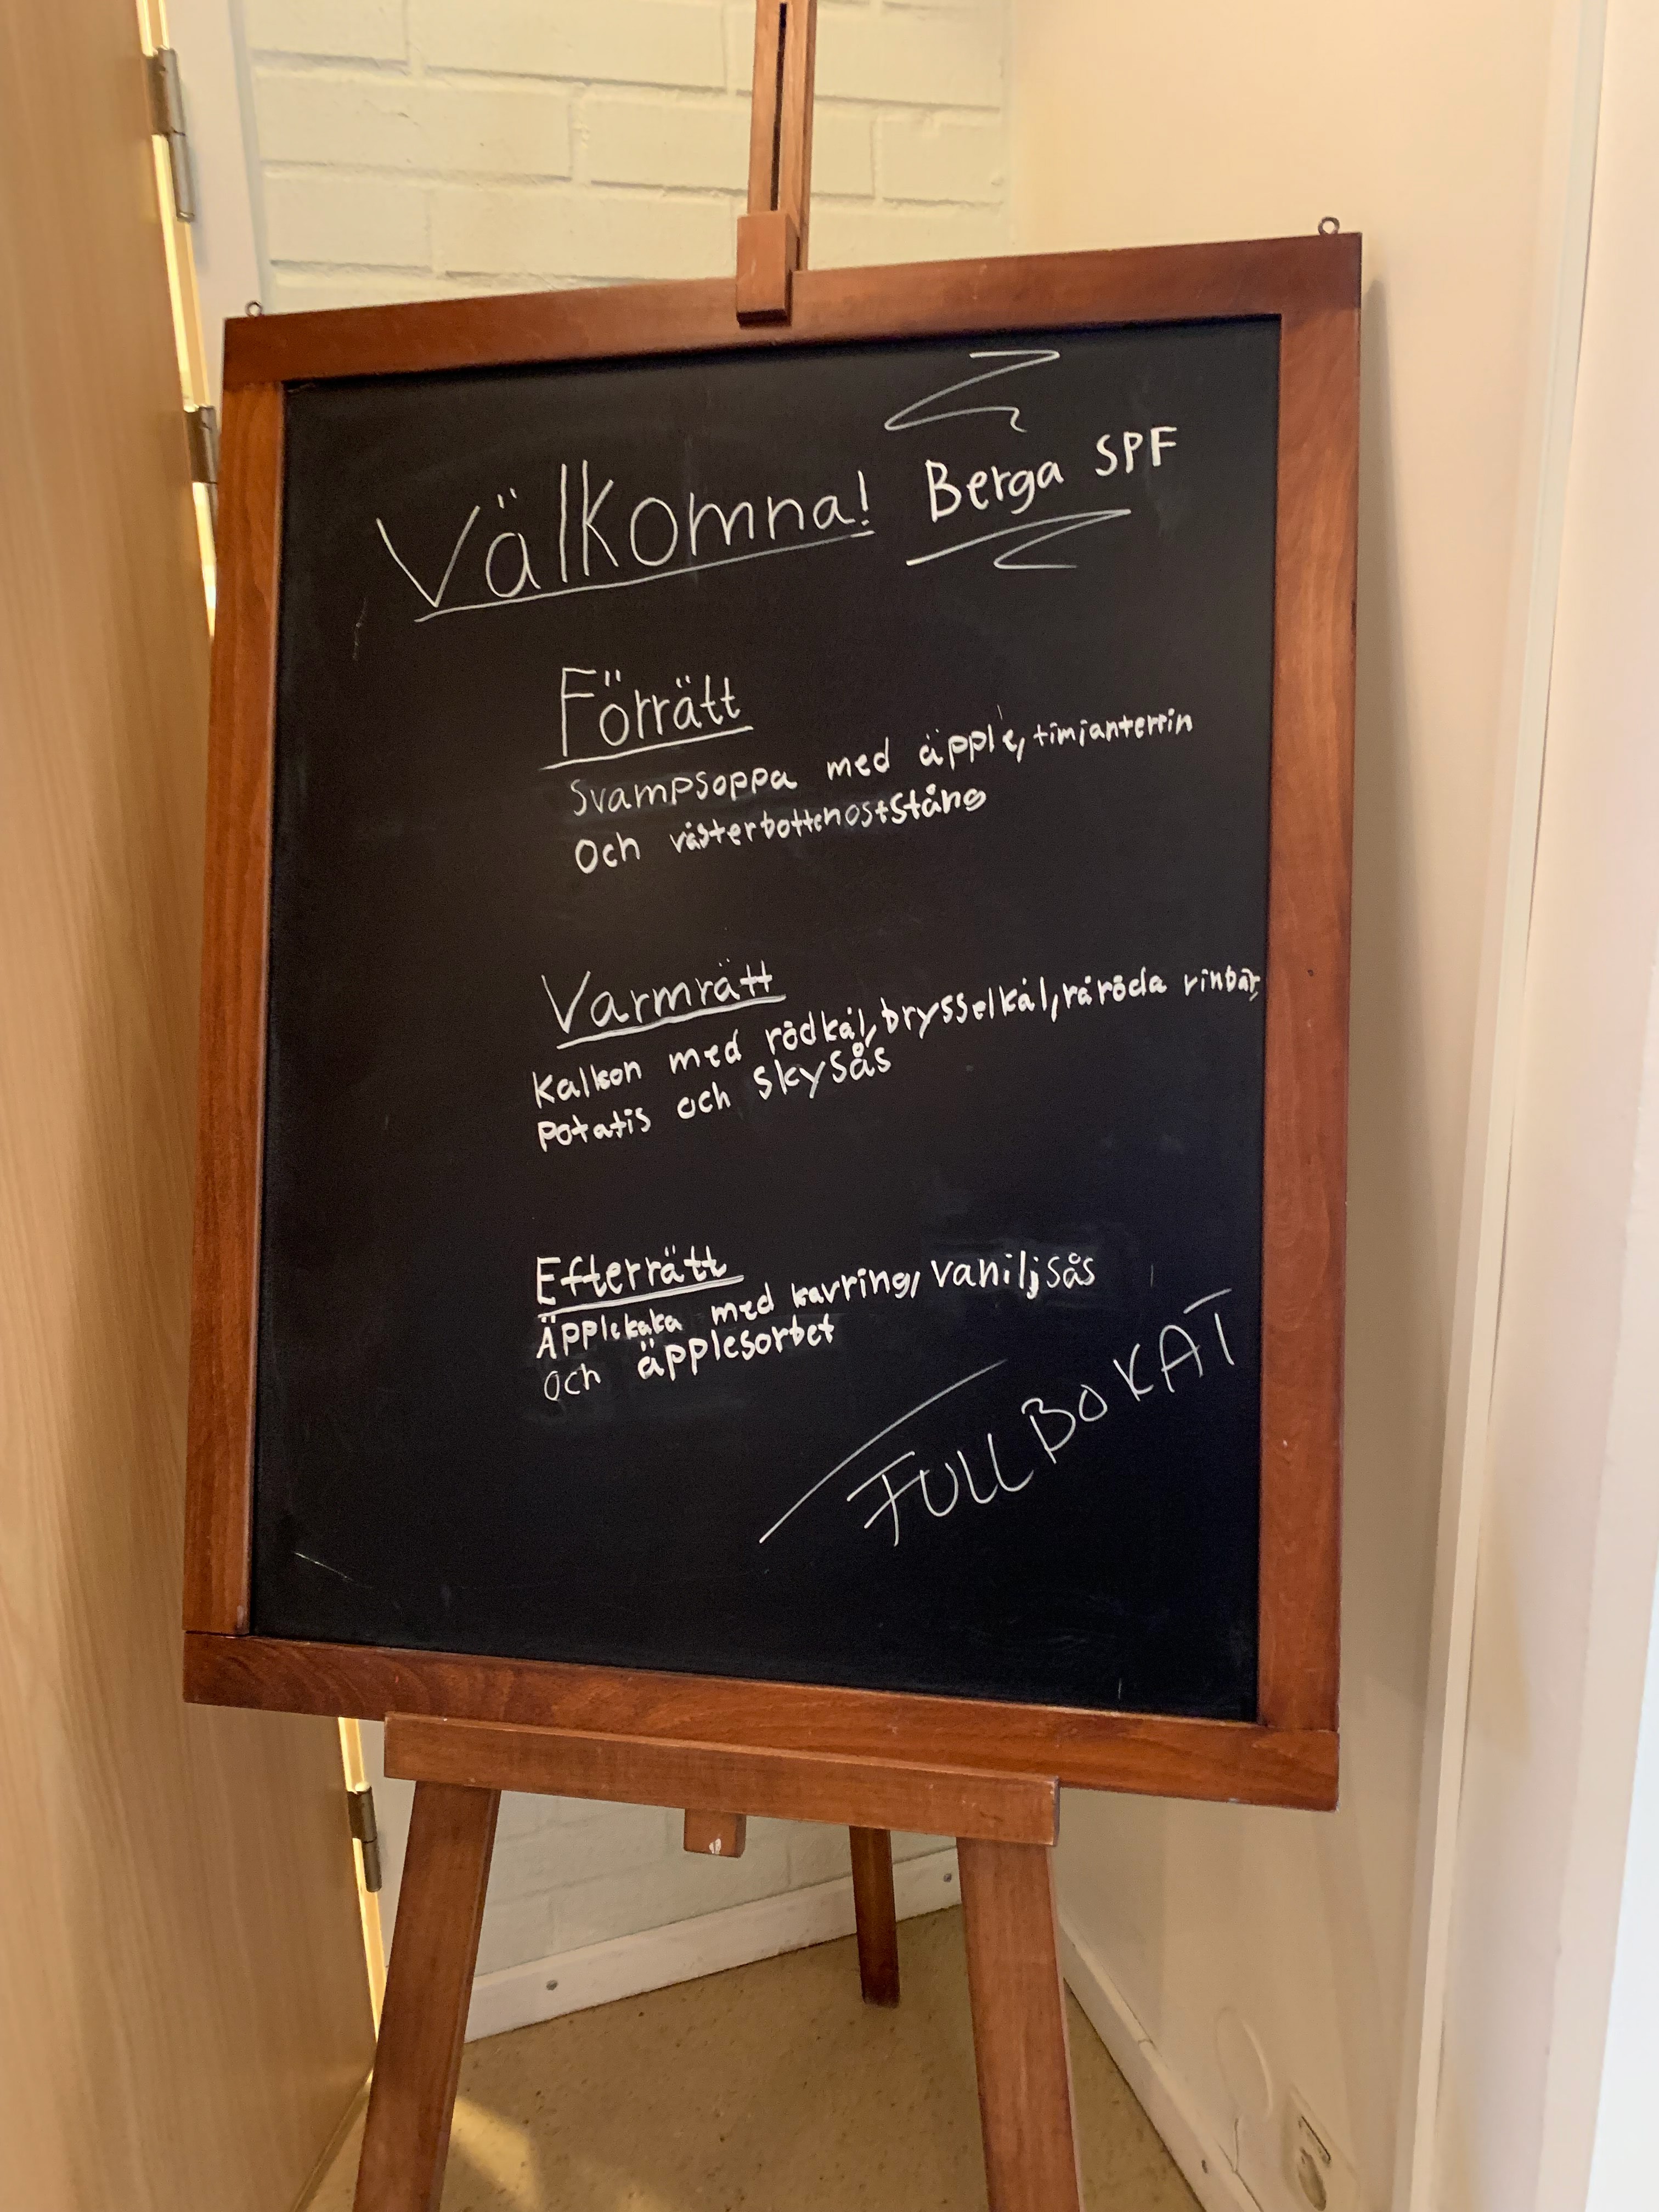 Välkomna! Berga SPF
Förrätt
Svampsoppa med äpple, timjanterrin
och västerbottenoststång
Varmrätt
Kalkon med rödkål, brysselkål, rårörda vinbär,
potatis och skysås
Efterrätt
Äpplekaka med kavring, vaniljsås
och äpplesorbet
FULLBOKAT